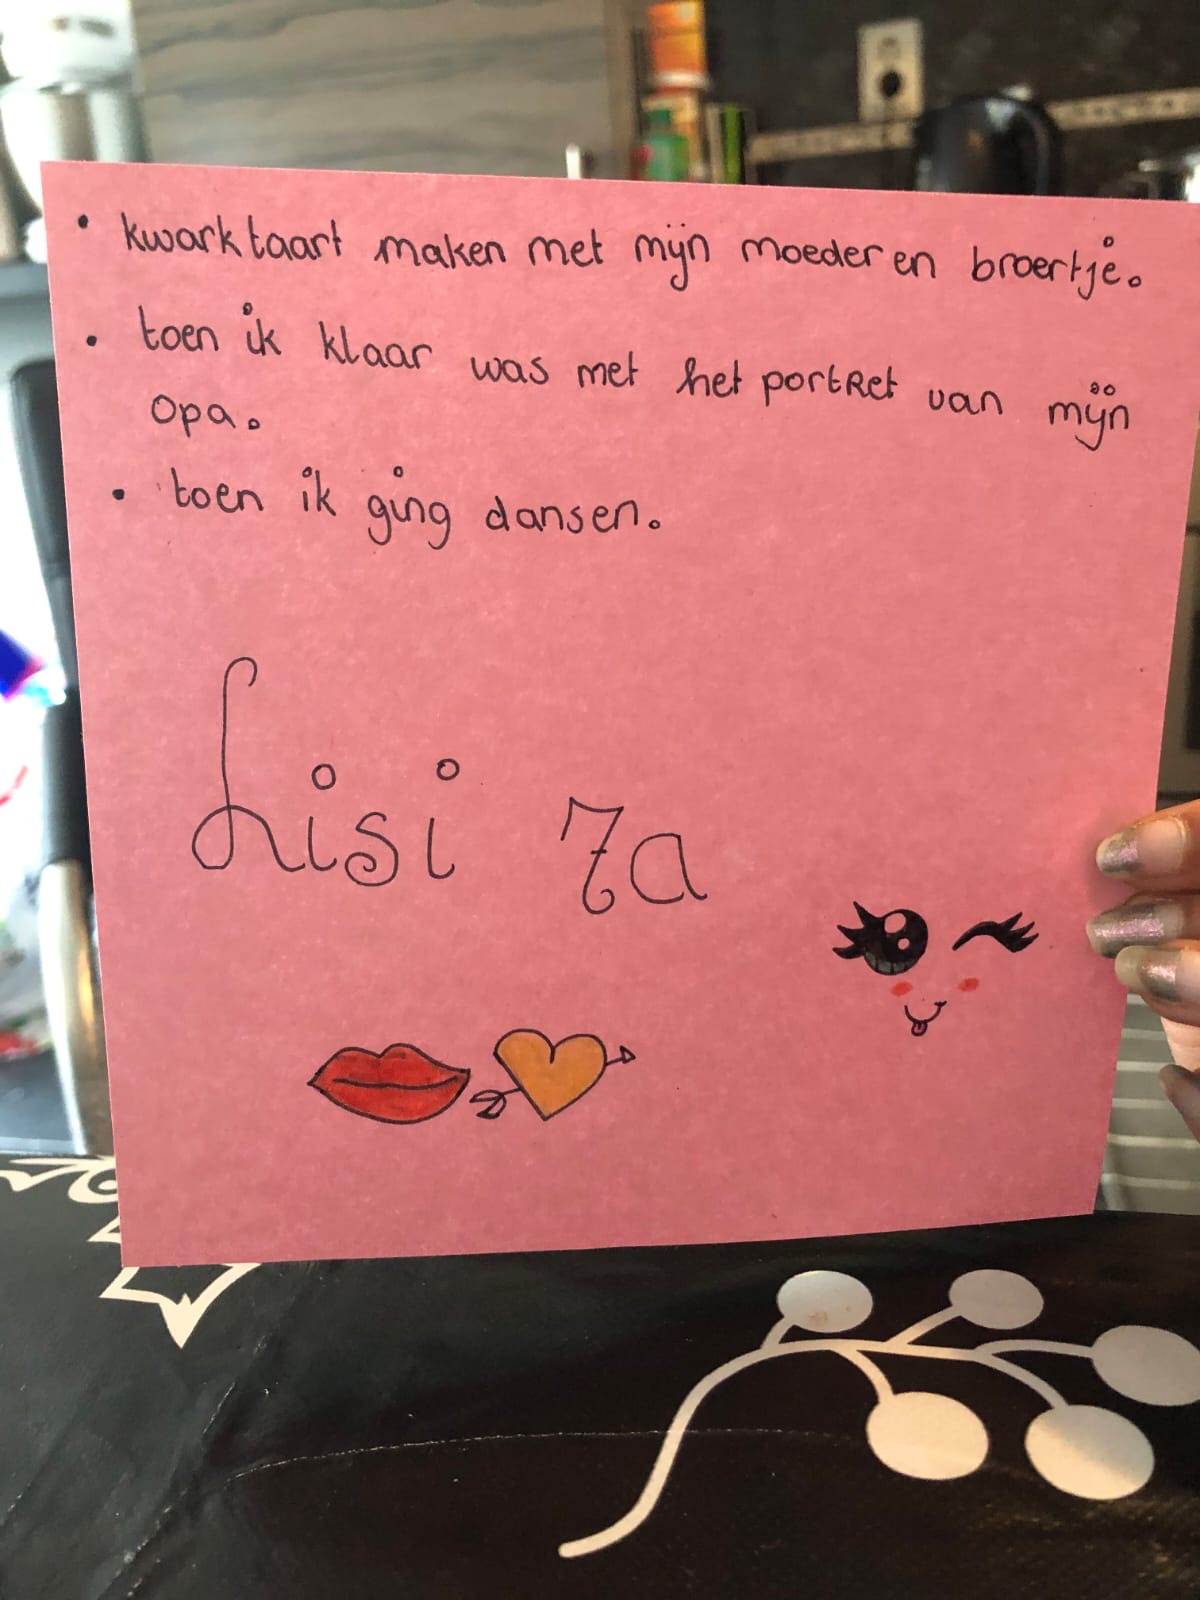 • kwarktaart maken met mijn moeder en broertje.
• toen ik klaar was met het portRet van mijn
opa.
• toen ik ging dansen.
Lisi 7a